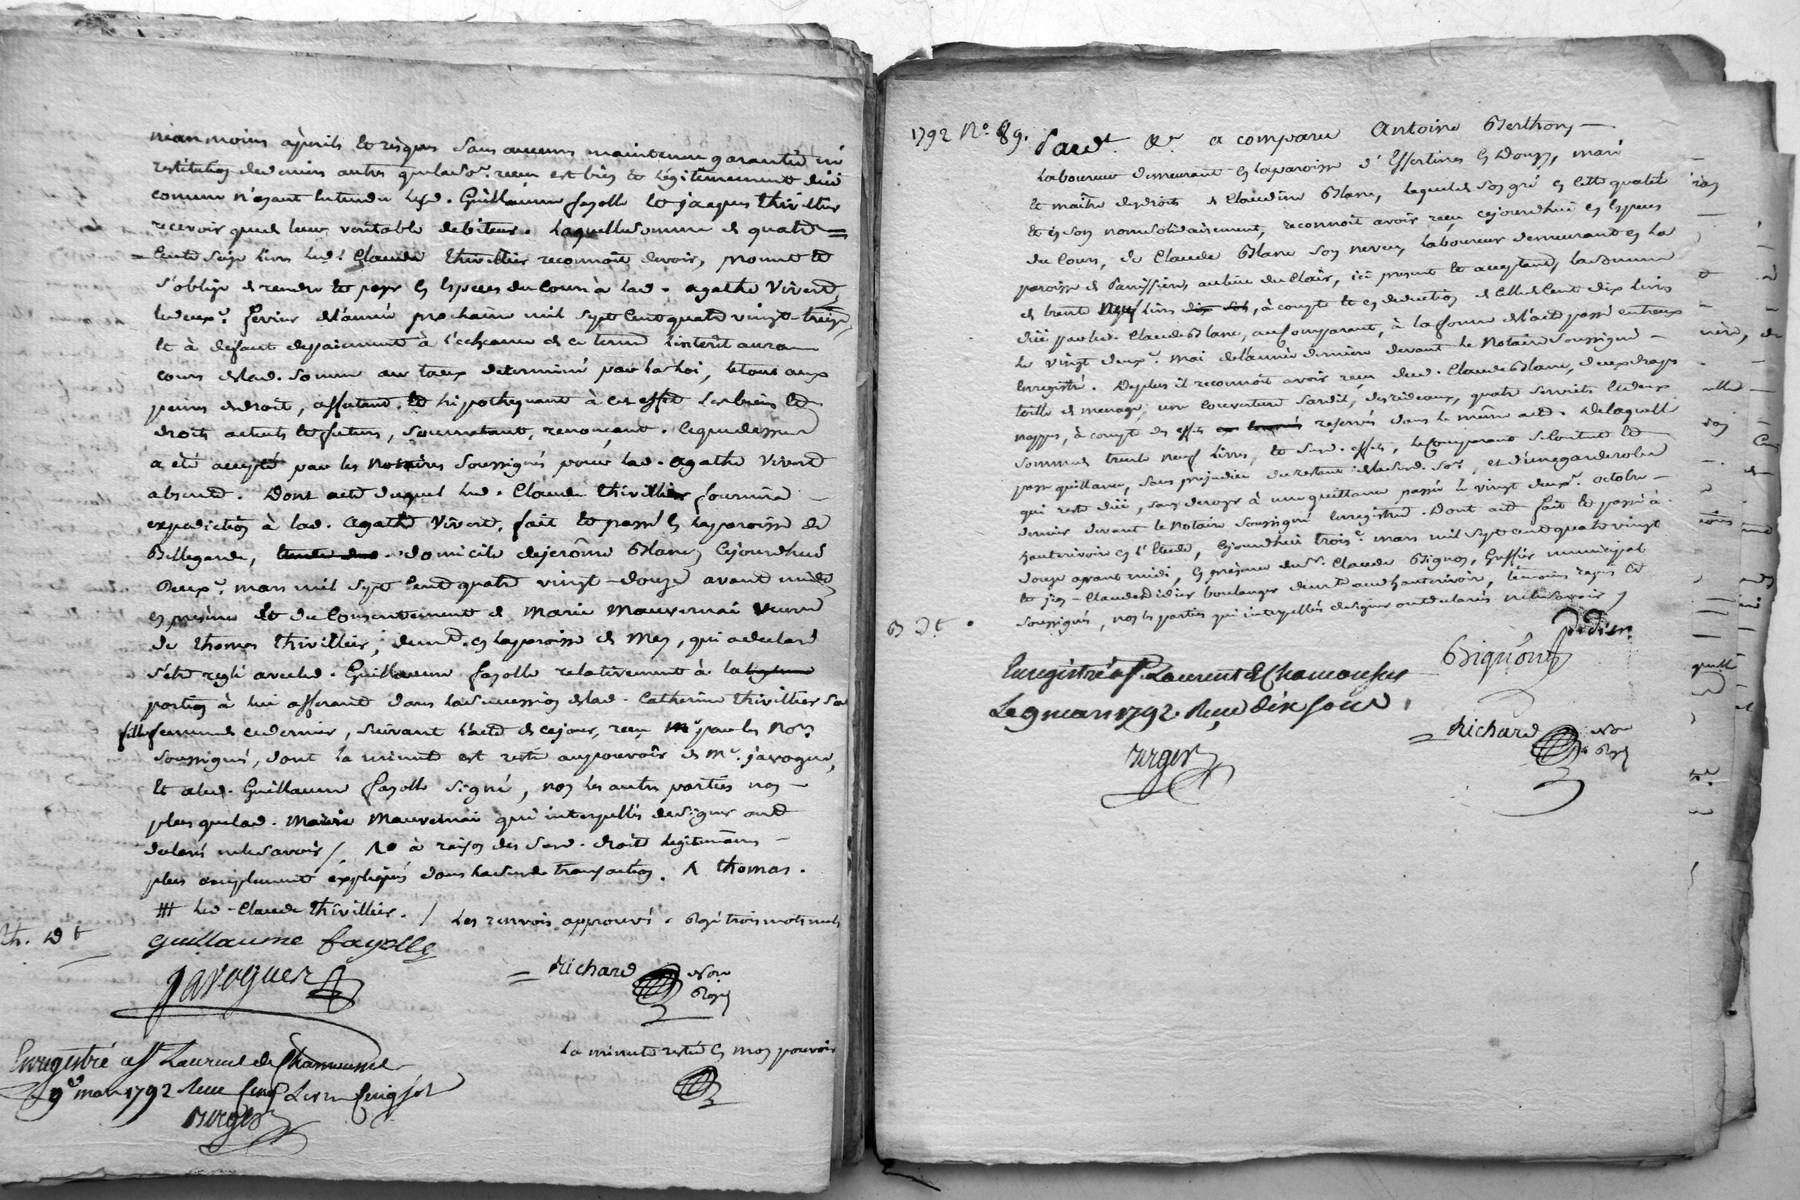 néanmoins à périls et risques sans aucune maintenue garantie ni
restitution de deniers autres que la so.e reçue est bien et légitimement düe
comme n'ayant entendu lesd. Guillaume fayolle et jacques thivillier
recevoir que de leur véritable debiteur. Laquelle somme de quatre =
= Cents seize livres led.t Claude thivillier reconnoit devoir, promet et
s'oblige de rendre et payer en Especes du Cours à lad. agathe Vivert
le deux.e fevrier de l'année prochaine mil sept Cent quatre vingt-treize,
et à defaut de paiement à l'echéance de ce terme l'interêt aura
cours de lad. somme au taux determiné par la loi, le tout aux
peines de droit, affectant et hipothéquant à cet effet ses biens et
droits actuels et futurs, soumettant, renonçant. Ce que dessus
a été accepté par les Notaires Soussignés pour lad. agathe Vivert
absente. Dont acte duquel led. Claude thivillier fournira
expedition à lad. agathe Vivert, fait et passé en la paroisse de
Bellegarde, domicile de jerôme Blanc, Cejourdhui
Deux.e mars mil sept Cent quatre vingt-douze avant midi
en présence et du Consentement de Marie Mauvernai Veuve
de thomas thivillier, demeur.te en la paroisse de Mey, qui a declaré
s'être reglé avec led. Guillaume fayolle relativement à la
portion à lui afferante dans la succession de lad. Catherine thivillier sa
fille femme de ce dernier, suivant l'acte de ce jour, reçu par les No.res
soussignés, dont la minute est restée au pouvoir de M.e javogue,
et a led. Guillaume fayolle signé, non les autres parties non
plus que lad. Marie Mauvernai qui interpellés de signer ont
declaré ne le savoir / à raison des susd. droits legitimaires
plus amplement expliqués dans lasusd.e transaction. thomas.
led. Claude thivillier. / Les renvois approuvés. Rayé trois mots nuls
th. D t
guillaume fayolle
javoguer
= Richard Not.re Royal
La minute restée en mon pouvoir
Enregistré a S.t Laurent de Chamousset
9.e mars 1792 Reçu cinq Livres cinq sols
Berger
1792 N.o 89. Pard.t &.a a comparu Antoine Berthon
Laboureur demeurant en la paroisse d'Essertines en Donzy, mari
et maitre des droits de Claudine Blanc, lequel de son gré en cette qualité
et en son nom solidairement, reconnoit avoir reçu cejourdhui en Especes
du Cours, de Claude Blanc son neveu, laboureur demeurant en la
paroisse de Panissieres au lieu du Clair, ici present et acceptant, la somme
de trente neuf livres dix sols, à compte et en deduction de celle de Cent dix livres
düe par led. Claude Blanc, au Comparant, à la forme de l'acte passé entr'eux
le vingt deux.e mai de l'année derniere devant le Notaire Soussigné
Enregistré. De plus il reconnoit avoir reçu dud. Claude Blanc, deux draps
toille de menage, une couverture sardil, des rideaux, quatre serviettes et deux
nappes, à compte des effets reservés dans le même acte. De laquelle
somme de trente neuf livres, et susd. effets, le Comparant se Contente et
passe quittance, sans prejudice du restant de la susd. so.e, et d'une garderobe
qui reste düe, sans deroger à une quittance passée le vingt deux.e octobre
dernier devant le Notaire Soussigné Enregistrée. Dont acte fait et passé à
hauterivoire en l'Etude, Cejourdhui trois.e mars mil sept cent quatre vingt
douze avant midi, en présence du S.r Claude Bignon, Greffier municipal
et Jean-Claude Didier boulanger demeur.t aud. hauterivoire, témoins requis et
soussignés, non les parties qui interpellés de signer ont declaré ne le savoir /
B D t.
Didier
Bignon
Enregistré a S.t Laurent de Chamousset
Le 9 mars 1792 Reçu dix sous.
Berger
= Richard Not.re Royal